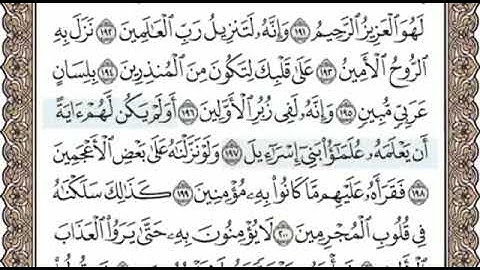 لَهُوَ ٱلْعَزِيزُ ٱلرَّحِيمُ ١٩١ وَإِنَّهُۥ لَتَنزِيلُ رَبِّ ٱلْعَٰلَمِينَ ١٩٢ نَزَلَ بِهِ
ٱلرُّوحُ ٱلْأَمِينُ ١٩٣ عَلَىٰ قَلْبِكَ لِتَكُونَ مِنَ ٱلْمُنذِرِينَ ١٩٤ بِلِسَانٍ
عَرَبِيٍّ مُّبِينٍ ١٩٥ وَإِنَّهُۥ لَفِى زُبُرِ ٱلْأَوَّلِينَ ١٩٦ أَوَلَمْ يَكُن لَّهُمْ ءَايَةً
أَن يَعْلَمَهُۥ عُلَمَٰٓؤُا۟ بَنِىٓ إِسْرَٰٓءِيلَ ١٩٧ وَلَوْ نَزَّلْنَٰهُ عَلَىٰ بَعْضِ ٱلْأَعْجَمِينَ
١٩٨ فَقَرَأَهُۥ عَلَيْهِم مَّا كَانُوا۟ بِهِۦ مُؤْمِنِينَ ١٩٩ كَذَٰلِكَ سَلَكْنَٰهُ
فِى قُلُوبِ ٱلْمُجْرِمِينَ ٢٠٠ لَا يُؤْمِنُونَ بِهِۦ حَتَّىٰ يَرَوُا۟ ٱلْعَذَابَ